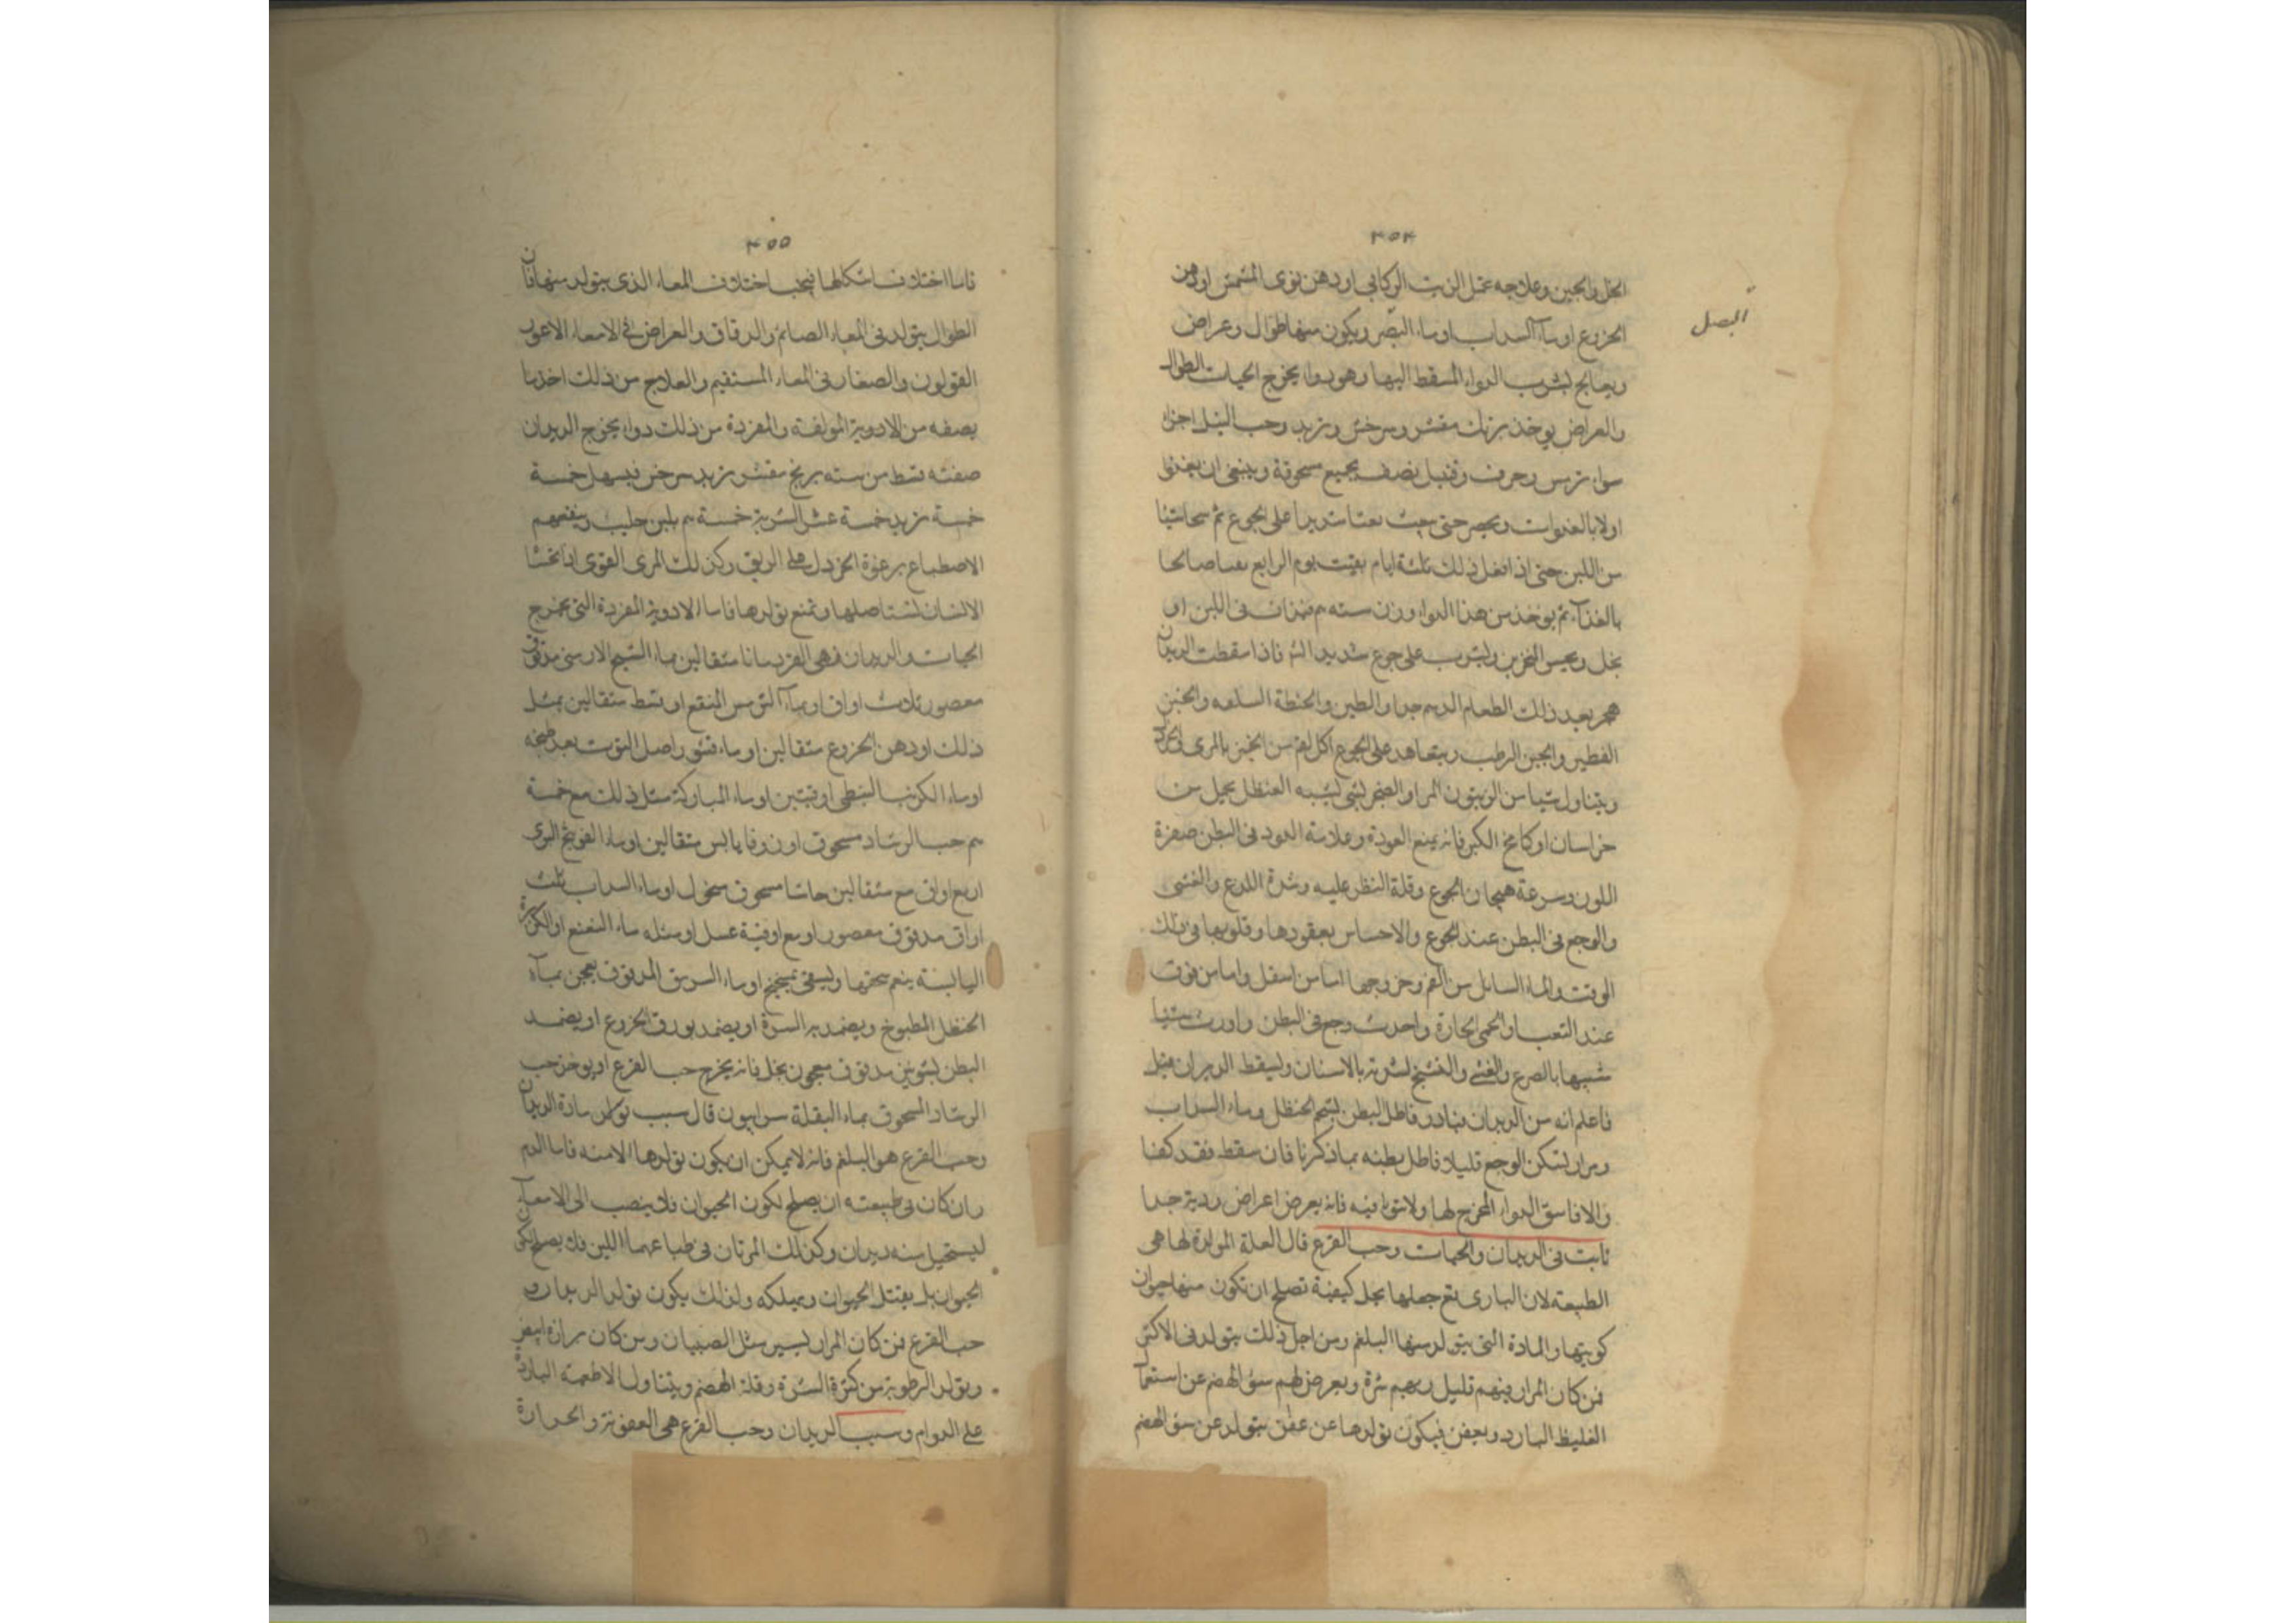 ٣٥٤
الخل والجبن وعلاجه عمل الزيت الركابى اودهن نوى المشمش اودهن
الخروع اوماء السداب اوماء البصر ويكون منها طوال وعراض
البصل
ويعالج بشرب الدواء المسقط اليها وهو دوا يخرج الحيات الطوال
والعراض يوخذ برنك مقشر وسرخس وتربد وحب النيل اجزاء
سواء ترمس وحرف وقنبيل نصف يجمع مسحوقة وينبغى ان يغذوا
اولا بالغدوات ويجر حتى يبعث بعثا شديدا على الجوع ثم شيئا
من اللبن حتى اذا فعل ذلك ثلثة ايام بقيت يوم الرابع صالحا
بالغذاء ثم يوخذ من هذا الدواء وزن ستة م فى اللبن او
بخل ويحبس النخرين ويشرب على جوع شديد فاذا سقطت الديدان
هجر بعد ذلك الطعام الدسم جدا والطين والحنطة والجبن
الفطير والجبن الرطب ويتعاهد على الجوع اكل لقم من الخبز بالمرى
ويتناول شيا من الزيتون المر او لشى يشبه الحنظل يحمل من
خراسان او كامخ الكبر فانه يمنع العودة وعلامة الدود فى البطن صفرة
اللون وسرعة هيجان الجوع وقلة النظر عليه وشدة اللذع والغشى
والوجع فى البطن عند الجوع والاحساس بعقودها وقلوبها فى ذلك
الوقت والماء السايل من الفم وخروجها اما من اسفل واما من فوق
عند التعب او الحمى الحارة واحدث وجع فى البطن واورث شيئا
شبيها بالصرع والغشى والتشنج بالاسنان وليسقط الديدان قبل
فاعلم انه من الديدان فبادر فاطل البطن بشحم الحنظل وماء السداب
ومرار لتسكن الوجع قليلا فاطل بطنه بما ذكرنا فان سقط فقد كفا
والا فاسق الدواء المخرج لها ولا تتوانا فيه فانه يعرض اعراض ردية جدا
ثابت فى الديدان والحيات وحب القرع قال العلة المولدة لها هى
الطبيعة لان البارى تع جعلها بجل كيفية تصلح ان تكون منها حيوان
كونيتها والمادة التى يتولد منها البلغم ومن اجل ذلك يتولد فى الاكثر
فمن كان المرار فيهم قليل وبهم شرة ويعرض لهم سؤ الهضم عن استعمال
الغليظ البارد وبعض فيكون تولدها عن عفن يتولد عن سؤ الهضم
٣٥٥
فاما اختلاف اشكالها فبحسب اختلاف المعاء الذى يتولد منها فان
الطوال يتولد فى المعاء الصائم والدقاق والعراض فى الامعاء الاعور
القولون والصغار فى المعاء المستقيم والعلاج من ذلك اخذ ما
يصفه من الادوية المولفة والمفردة من ذلك دواء يخرج الديدان
صفته قسط من سته برنج مقشر تربد سرخس فيسهل خمسة
خمسة تربد خمسة عشر الشربة خمسة م بلبن حليب وينفعهم
الاصطباغ برغوة الخردل على الريق وكذلك المرى القوى اذا تحشا
الانسان لتستاصلها وتمنع تولدها فاما الادوية المفردة التى يخرج
الحيات والديدان فهى القردمانا مثقالين بماء الشيح الارمنى مدقوق
معصور ثلاث اواق اوبماء الترمس المنقع او قسط مثقالين بمثل
ذلك اودهن الخروع مثقالين اوماء قشور اصل التوت بعد طبخه
اوماء الكرنب النبطى اوقيتين اوماء المباركة مثل ذلك مع خمسة
م حب الرشاد مسحوق او زوفا يابس مثقالين اوماء الفوتنج البرى
اربع اواق مع مثقالين حاشا مسحوق منخول اوماء السداب ثلث
اواق مدقوق معصور اومع اوقية عسل اومثله ماء النعنع او الكزبرة
اليابسة ينعم سحقها ويسقى بميبختج اوماء السريق المدقوق يعجن بماء
الحنظل المطبوخ ويضمد به السرة اويضمد بورق الخروع اويضمد
البطن بشونيز مدقوق معجون بخل فانه يخرج حب القرع اويوخذ حب
الرشاد المسحوق بماء البقلة سرابيون قال سبب تولد مادة الديدان
وحب القرع هو البلغم فانه لا يمكن ان يكون تولدها الا منه فاما الدم
وان كان فى طبيعته ان يصلح لكون الحيوان فلا ينصب الى الامعاء
ليستحيل منه ديدان وكذلك المرتان فى طباعهما اللين فلا يصلح لكون
الحيوان بل يقتل الحيوان ويهلكه ولذلك يكون تولد الديدان و
حب القرع فمن كان المرار يسير مثل الصبيان ومن كان مزازه ابيض
ويتولد الرطوبة من كثرة الشرة وقلة الهضم ويتناول الاطعمة الباردة
على الدوام وسبب الديدان وحب القرع هى العفونة والحرارة